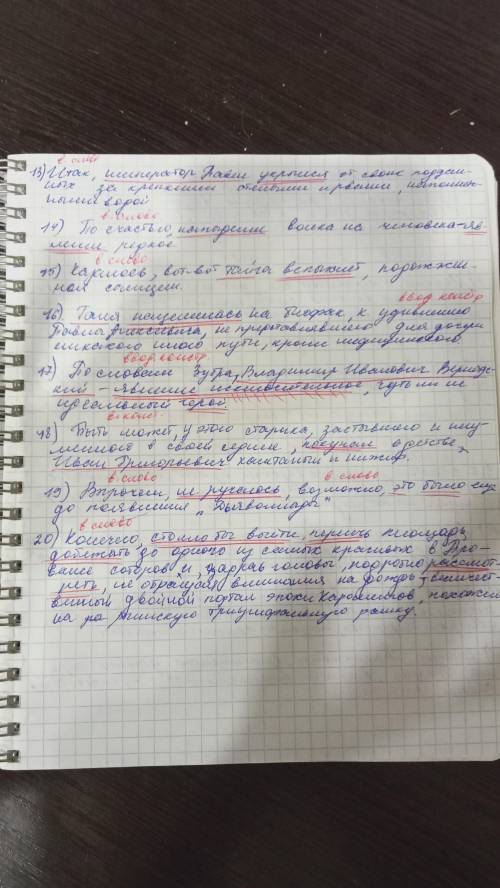 в. слово
13) Итак, император Павел укрылся от своих поддан-
ных за крепкими стенами и рвами, наполнен-
ными водой
в. слово
14) По счастью, нападение волка на человека-яв-
ление редкое.
в. слово
15) Казалось, вот-вот тайга вспыхнет, подожжен-
ная солнцем.
ввод констр
16) Таня нацелилась на биофак, к удивлению
Павла Алексеевича, не представлявшего для дочери
никакого иного пути, кроме медицинского.
ввод констр.
17) По словам Зубра, Владимир Иванович Вернадс-
кий - явление исключительное, чуть ли не
идеальный герой.
18) Быть может, у этого старика, застывшего и
в своей седине, в детстве
Иван Григорьевич
в слово в слово
19) Впрочем, не ручаюсь, возможно, это было еще
до появления „Дьяволиады"
в слово
20) Конечно, стоило бы выйти, пересечь площадь,
добежать до одного из самых красивых в Про-
вансе соборов и, задрав головы, подробно рассмот-
реть, не обращая внимания на дождь,
двойной портал эпохи Каролингов, похожий
на римскую триумфальную арку.